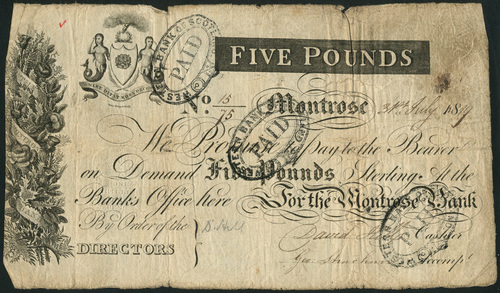 FIVE POUNDS
WESTERN BANK OF SCOTLAND
PAID
No. 15/75 Montrose 31st July 18
WESTERN BANK
PAID
We Promise to Pay to the Bearer
on Demand Five Pounds Sterling At the
Banks Office here For the Montrose Bank
By Order of the
David Cashier
DIRECTORS
Geo. Accompt.
WESTERN BANK
PAID